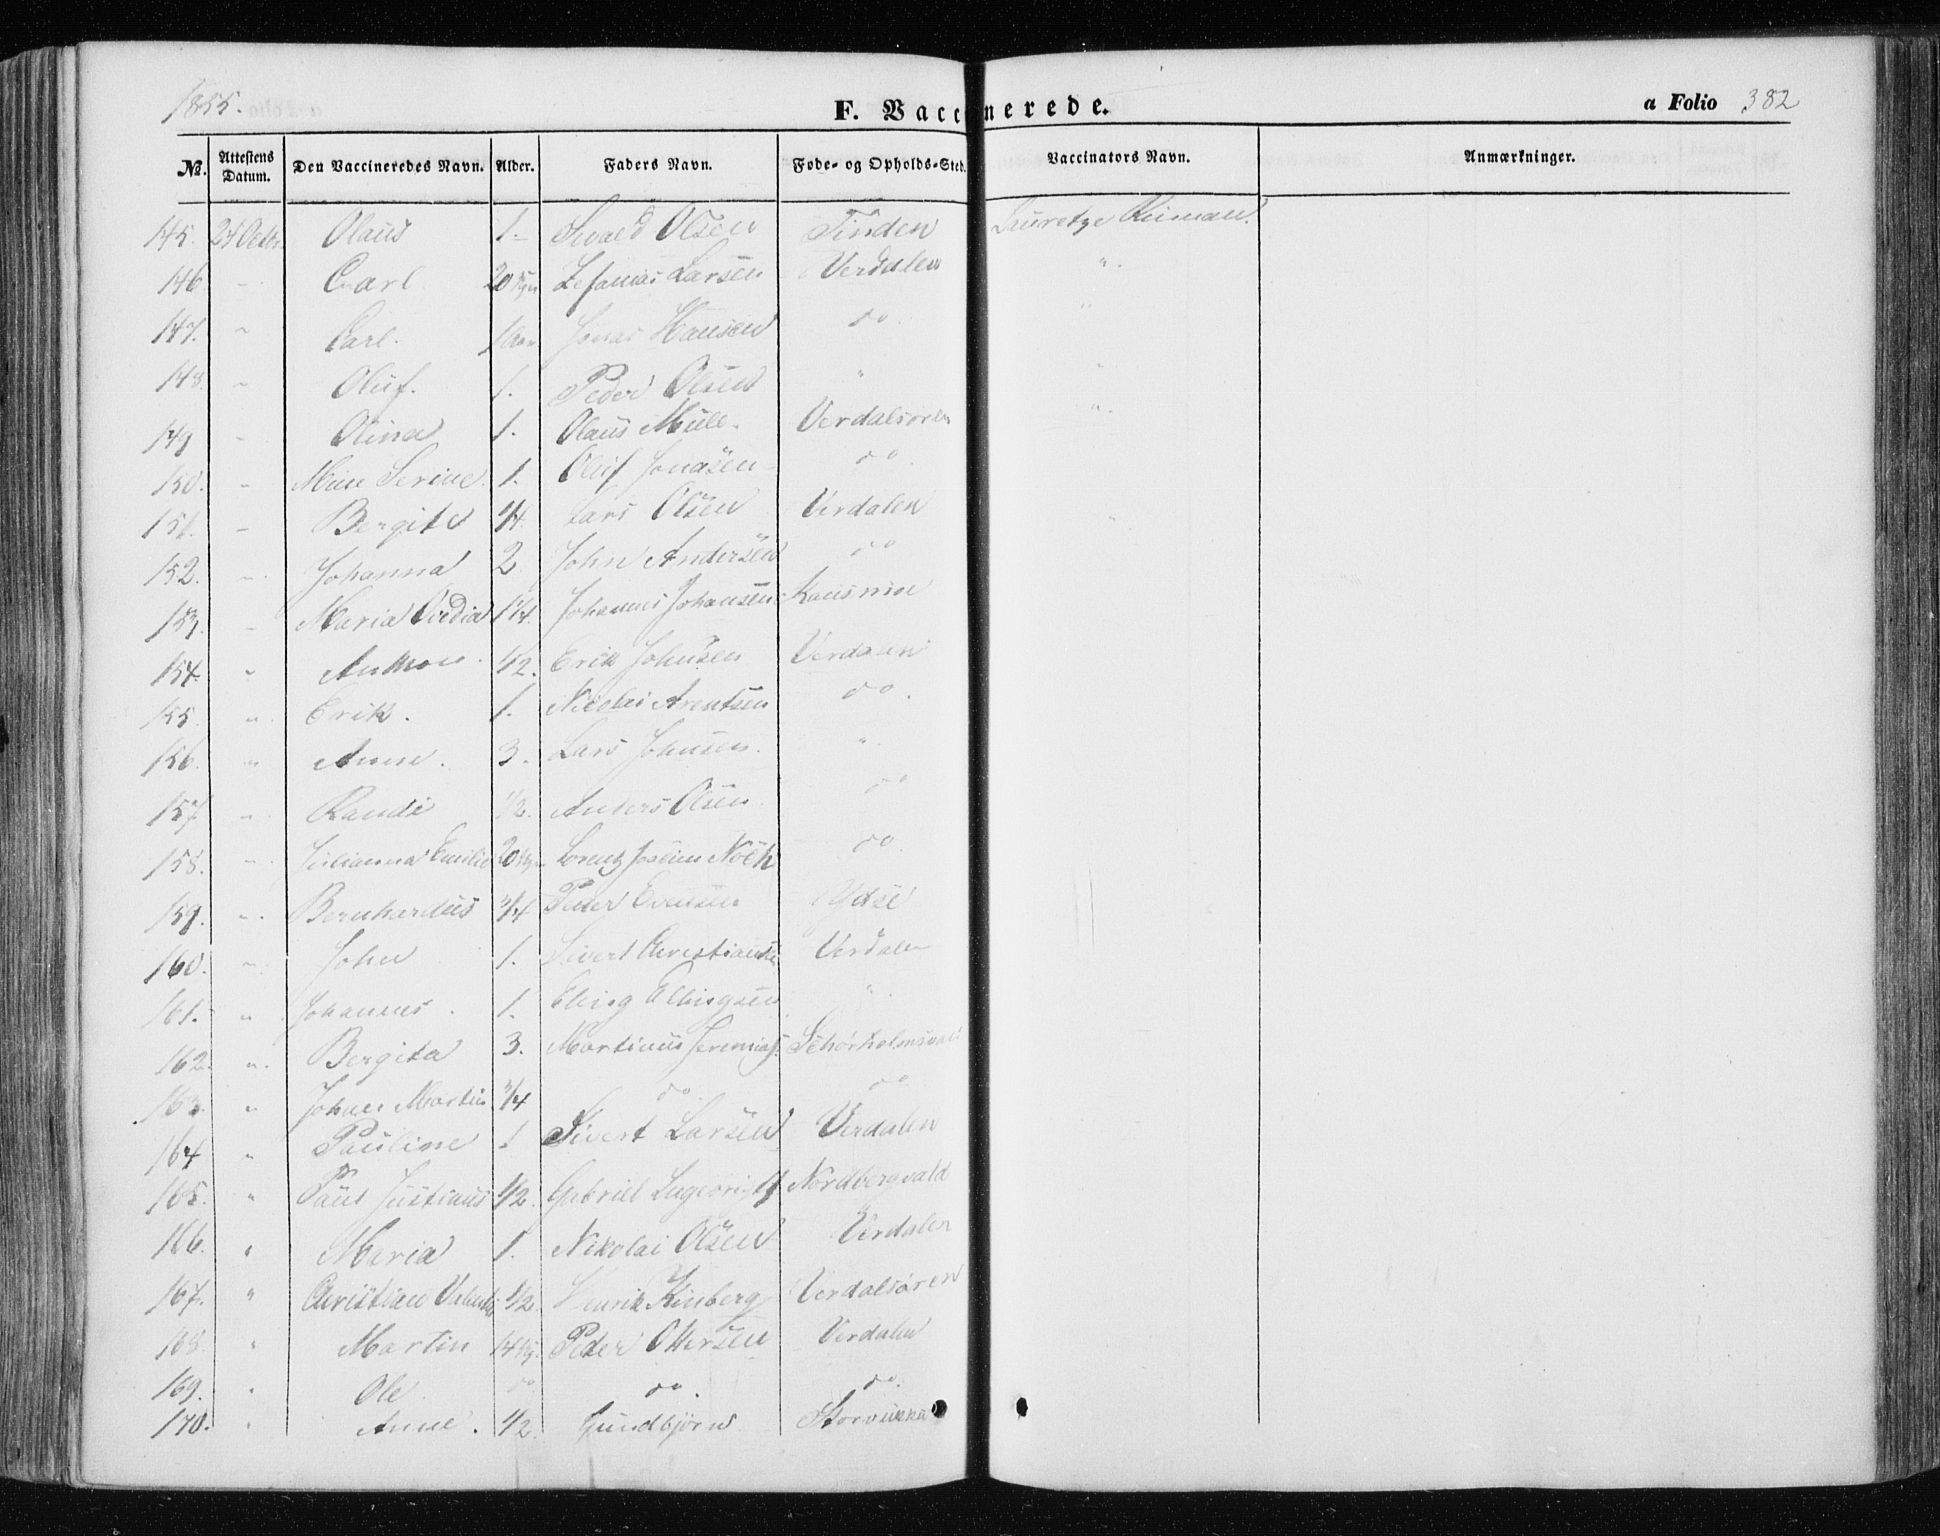 1855.
F. Vaccinerede.
a Folio 382
No. Attestens Datum. Den Vaccineredes Navn. Alder. Faders Navn. Føde- og Opholds-Sted. Vaccinators Navn. Anmærkninger.
145. 24 Octbr Olaus 1. Sivald Olsen Tinden
146 - Carl 20 Zefanias Larsen Verdalen "
147. " Carl. 1 Jonas Hansen do. "
148. - Oluf. 1. Peder Olsen " "
149 - Olina 1. Olaus Mule. Verdalsøren "
150. - Serine. 1. Oluf Jonasen do.
151. - Bergite Lars Olsen Verdalen "
152. - Johanna 2 John Andersen do "
153. - Maria 1 1/4. Johannes Johansen
154. " 1/2. Erik Johnsen Verdalen
155. " Erik. 1. Nicolai Arentsen do.
156. " Anne. 3. Lars Johnsen. "
157 " Randi 1/2. Anders Olsen. do
158. " Julianna Emilie 20 Lorentz do.
159. " Bernhardus 3/4 Peder Evensen Ydse
160. " John 1. Sivert Christiansen Verdalen
161. " Johannes. 1. Elling Ellingsen "
162. " Bergita 3. Martinus Jeremias.
163. " Johan Martin 3/4 do. do
164 " Pauline 1 Sivert Larsen Verdalen
165. " Paul Justinus 1/2. Gabriel Nordbergvald
166. " Maria 1. Nikolai Olsen Verdalen
167. " Christian 1/2. Henrik Kinberg Verdalsøren
168. " Martin 14 Peder Ottersen Verdalen
169. " Ole. do do. do.
170. " Anne. 1/2. Gundbjørn